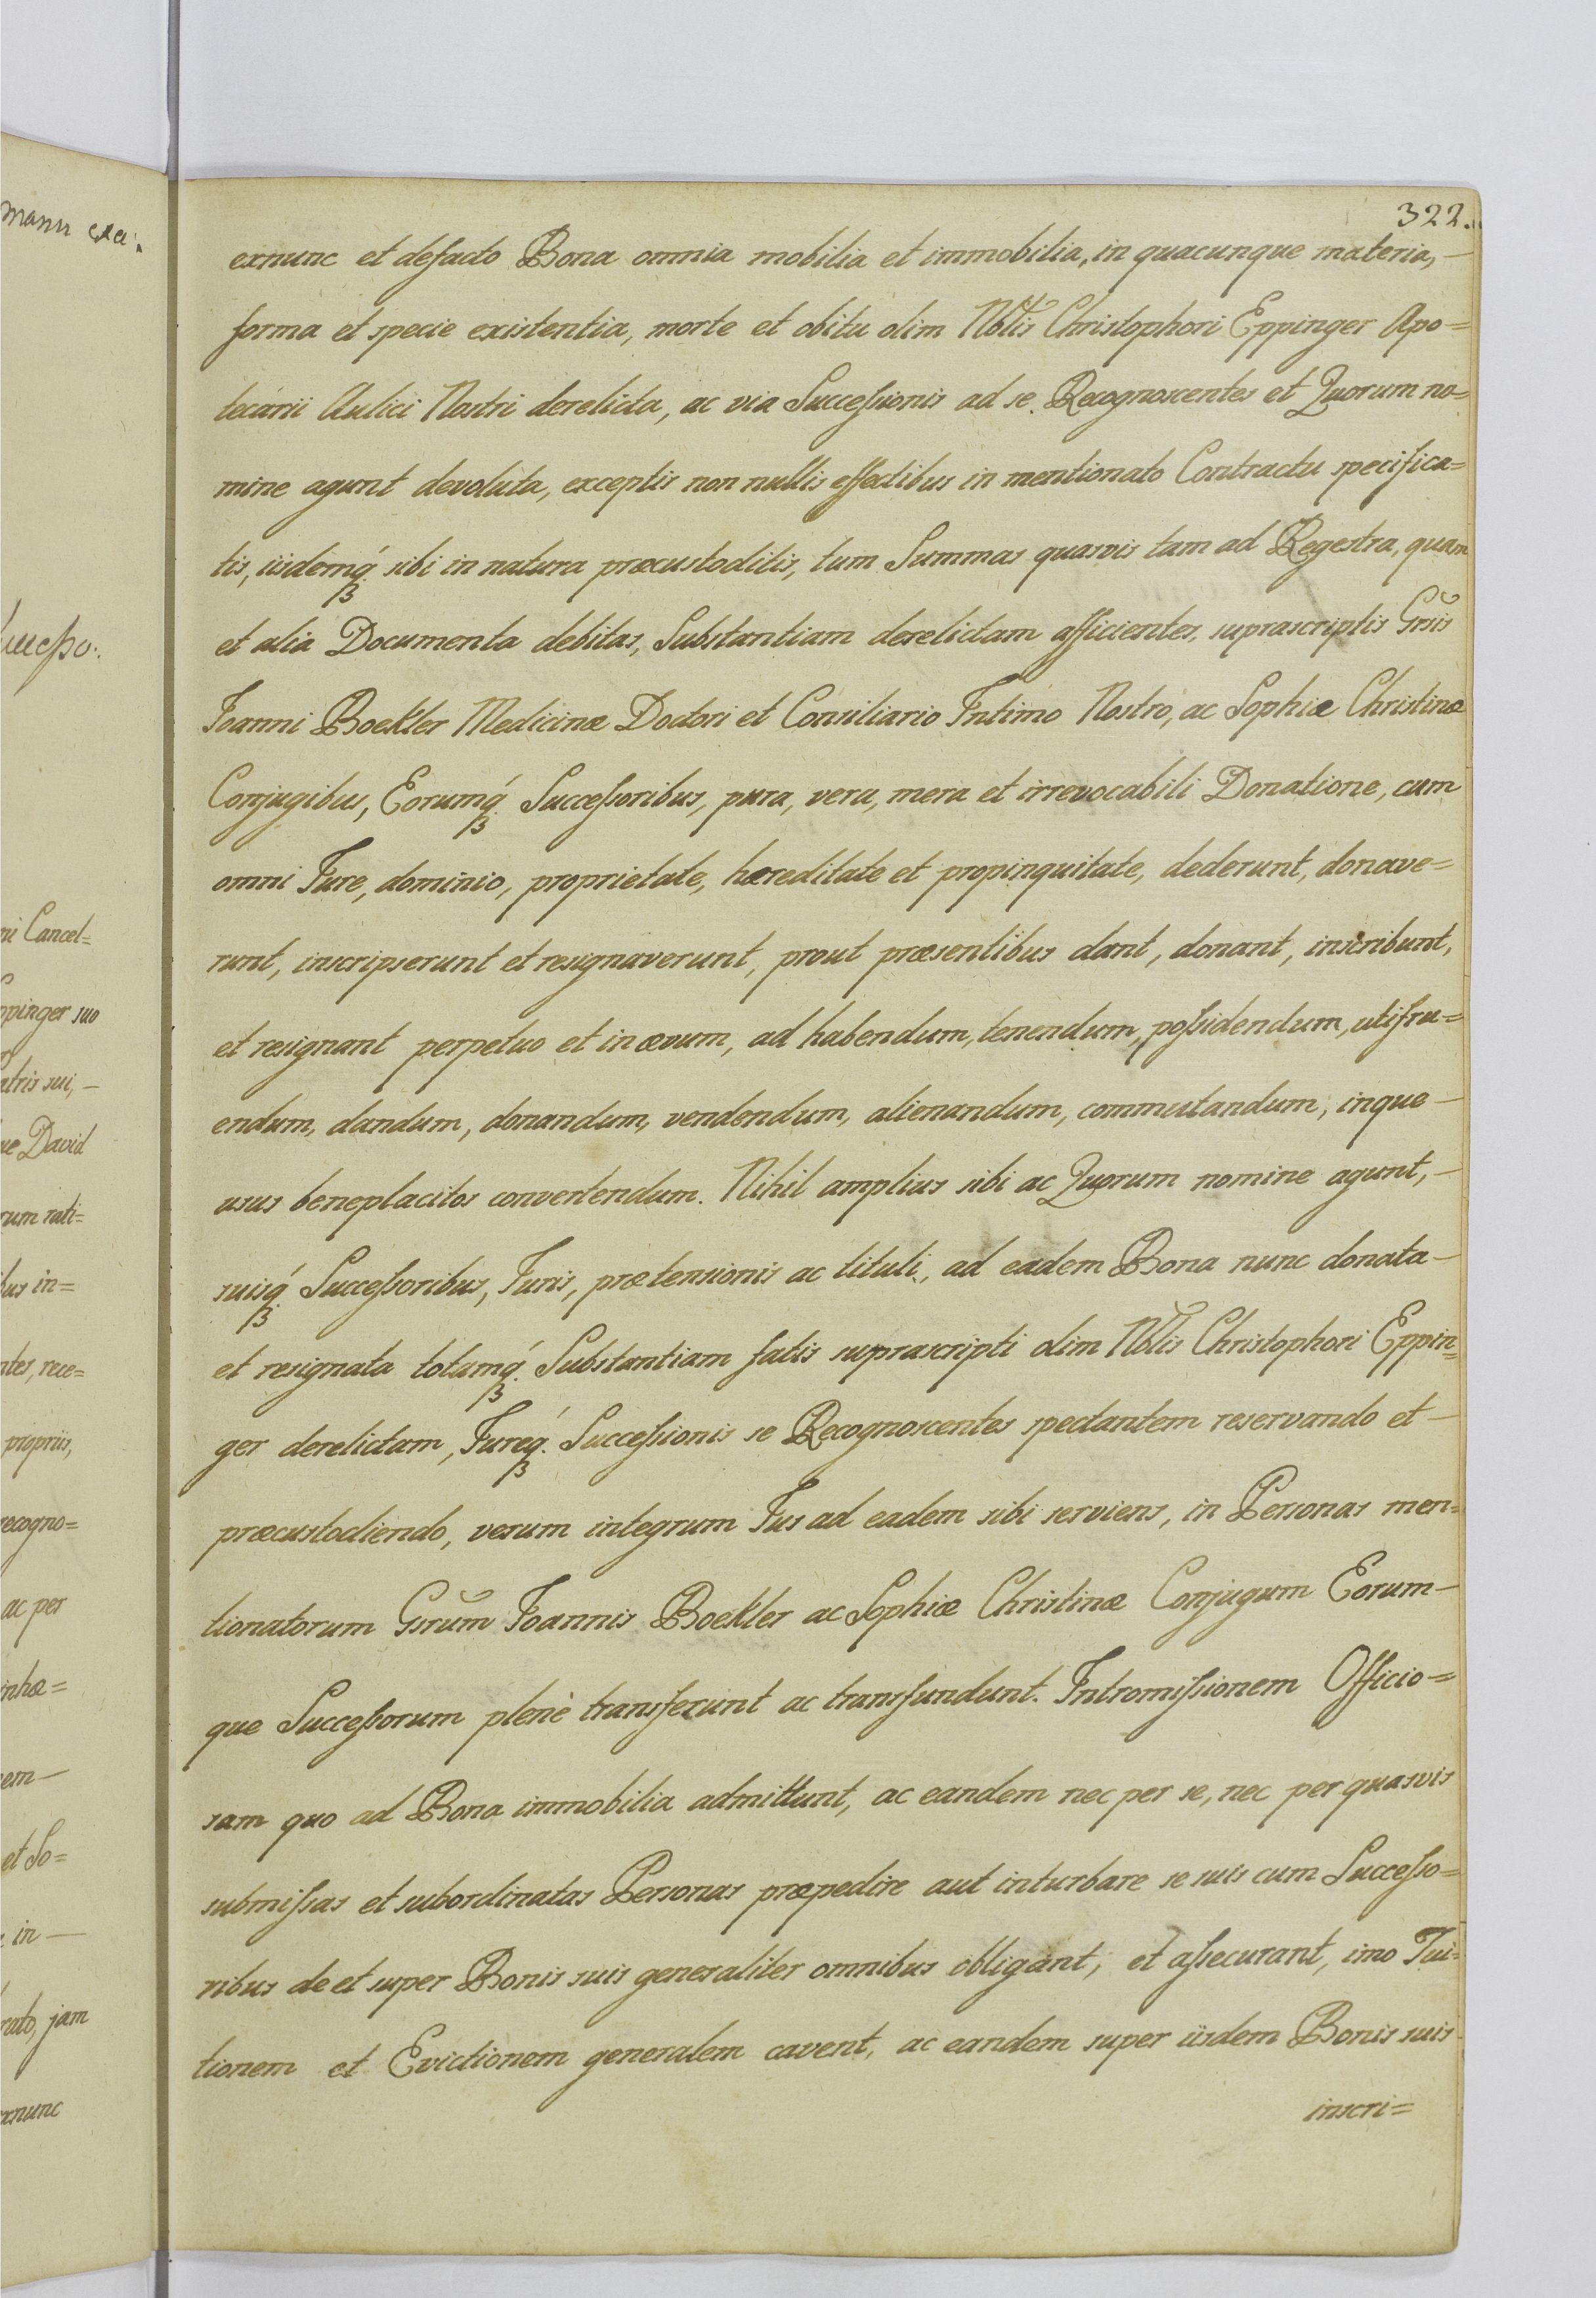 322.
exnunc et defacto Bona omnia mobilia et immobilia, in quacunque materia,-
forma et specie existentia, morte et obitu olim Nbtis Christophori Eppinger Apo=
tecarii Aulici Nostri derelicta, ac via Succeſsionis ad se Recognoscentes et Quorum no=
mine agunt devoluta, exceptis non nullis effectibus in mentionato Contractu specifica=
tis, iisdemq́ꝫ sibi in natura præcustoditis, tum Summas quasvis tam ad Regestra, quam
et alia Documenta debitas, Substantiam derelictam afficientes, suprascriptis Gn̄sis
Joanni Boekler Medicinæ Doctori et Consiliario Intimo Nostro, ac Sophiæ Christinæ
Conjugibus, Eorumq́ꝫ Succeſsoribus, pura, vera, mera et irrevocabili Donatione, cum
omni Jure, dominio, proprietate, hæreditate et propinquitate, dederunt, donave=
runt, inscripserunt et resignaverunt, prout præsentibus dant, donant, inscribunt,
et resignant perpetuo et in ævum, ad habendum, tenendum, poſsidendum, utifru=
endum, dandum, donandum, vendendum, alienandum, commutandum, inque-
usus beneplacitos convertendum. Nihil amplius sibi ac Quorum nomine agunt,-
suisq́ꝫ Succeſsoribus, Juris, prætensionis ac tituli, ad eadem Bona nunc donata-
et resignata totamq́ꝫ Substantiam fatis suprascripti olim Nbtis Christophori Eppin=
ger derelictam, Jureq́ꝫ Succeſsionis se Recognoscentes spectantem reservando et-
præcustodiendo, verum integrum Jus ad eadem sibi serviens, in Personas men=
tionatorum Gsrum Joannis Boekler ac Sophiæ Christinæ Conjugum Eorum-
que Succeſsorum plenè transferunt ac transfundunt. Intromiſsionem Officio=
sam quo ad Bona immobilia admittunt, ac eandem nec per se, nec per quasvis
submiſsas et subordinatas Personas præpedire aut inturbare se suis cum Succeſso=
ribus de et super Bonis suis generaliter omnibus obligant, et aſsecurant, imo Tui=
tionem et Evictionem generalem cavent, ac eandem super iisdem Bonis suis
inscri=